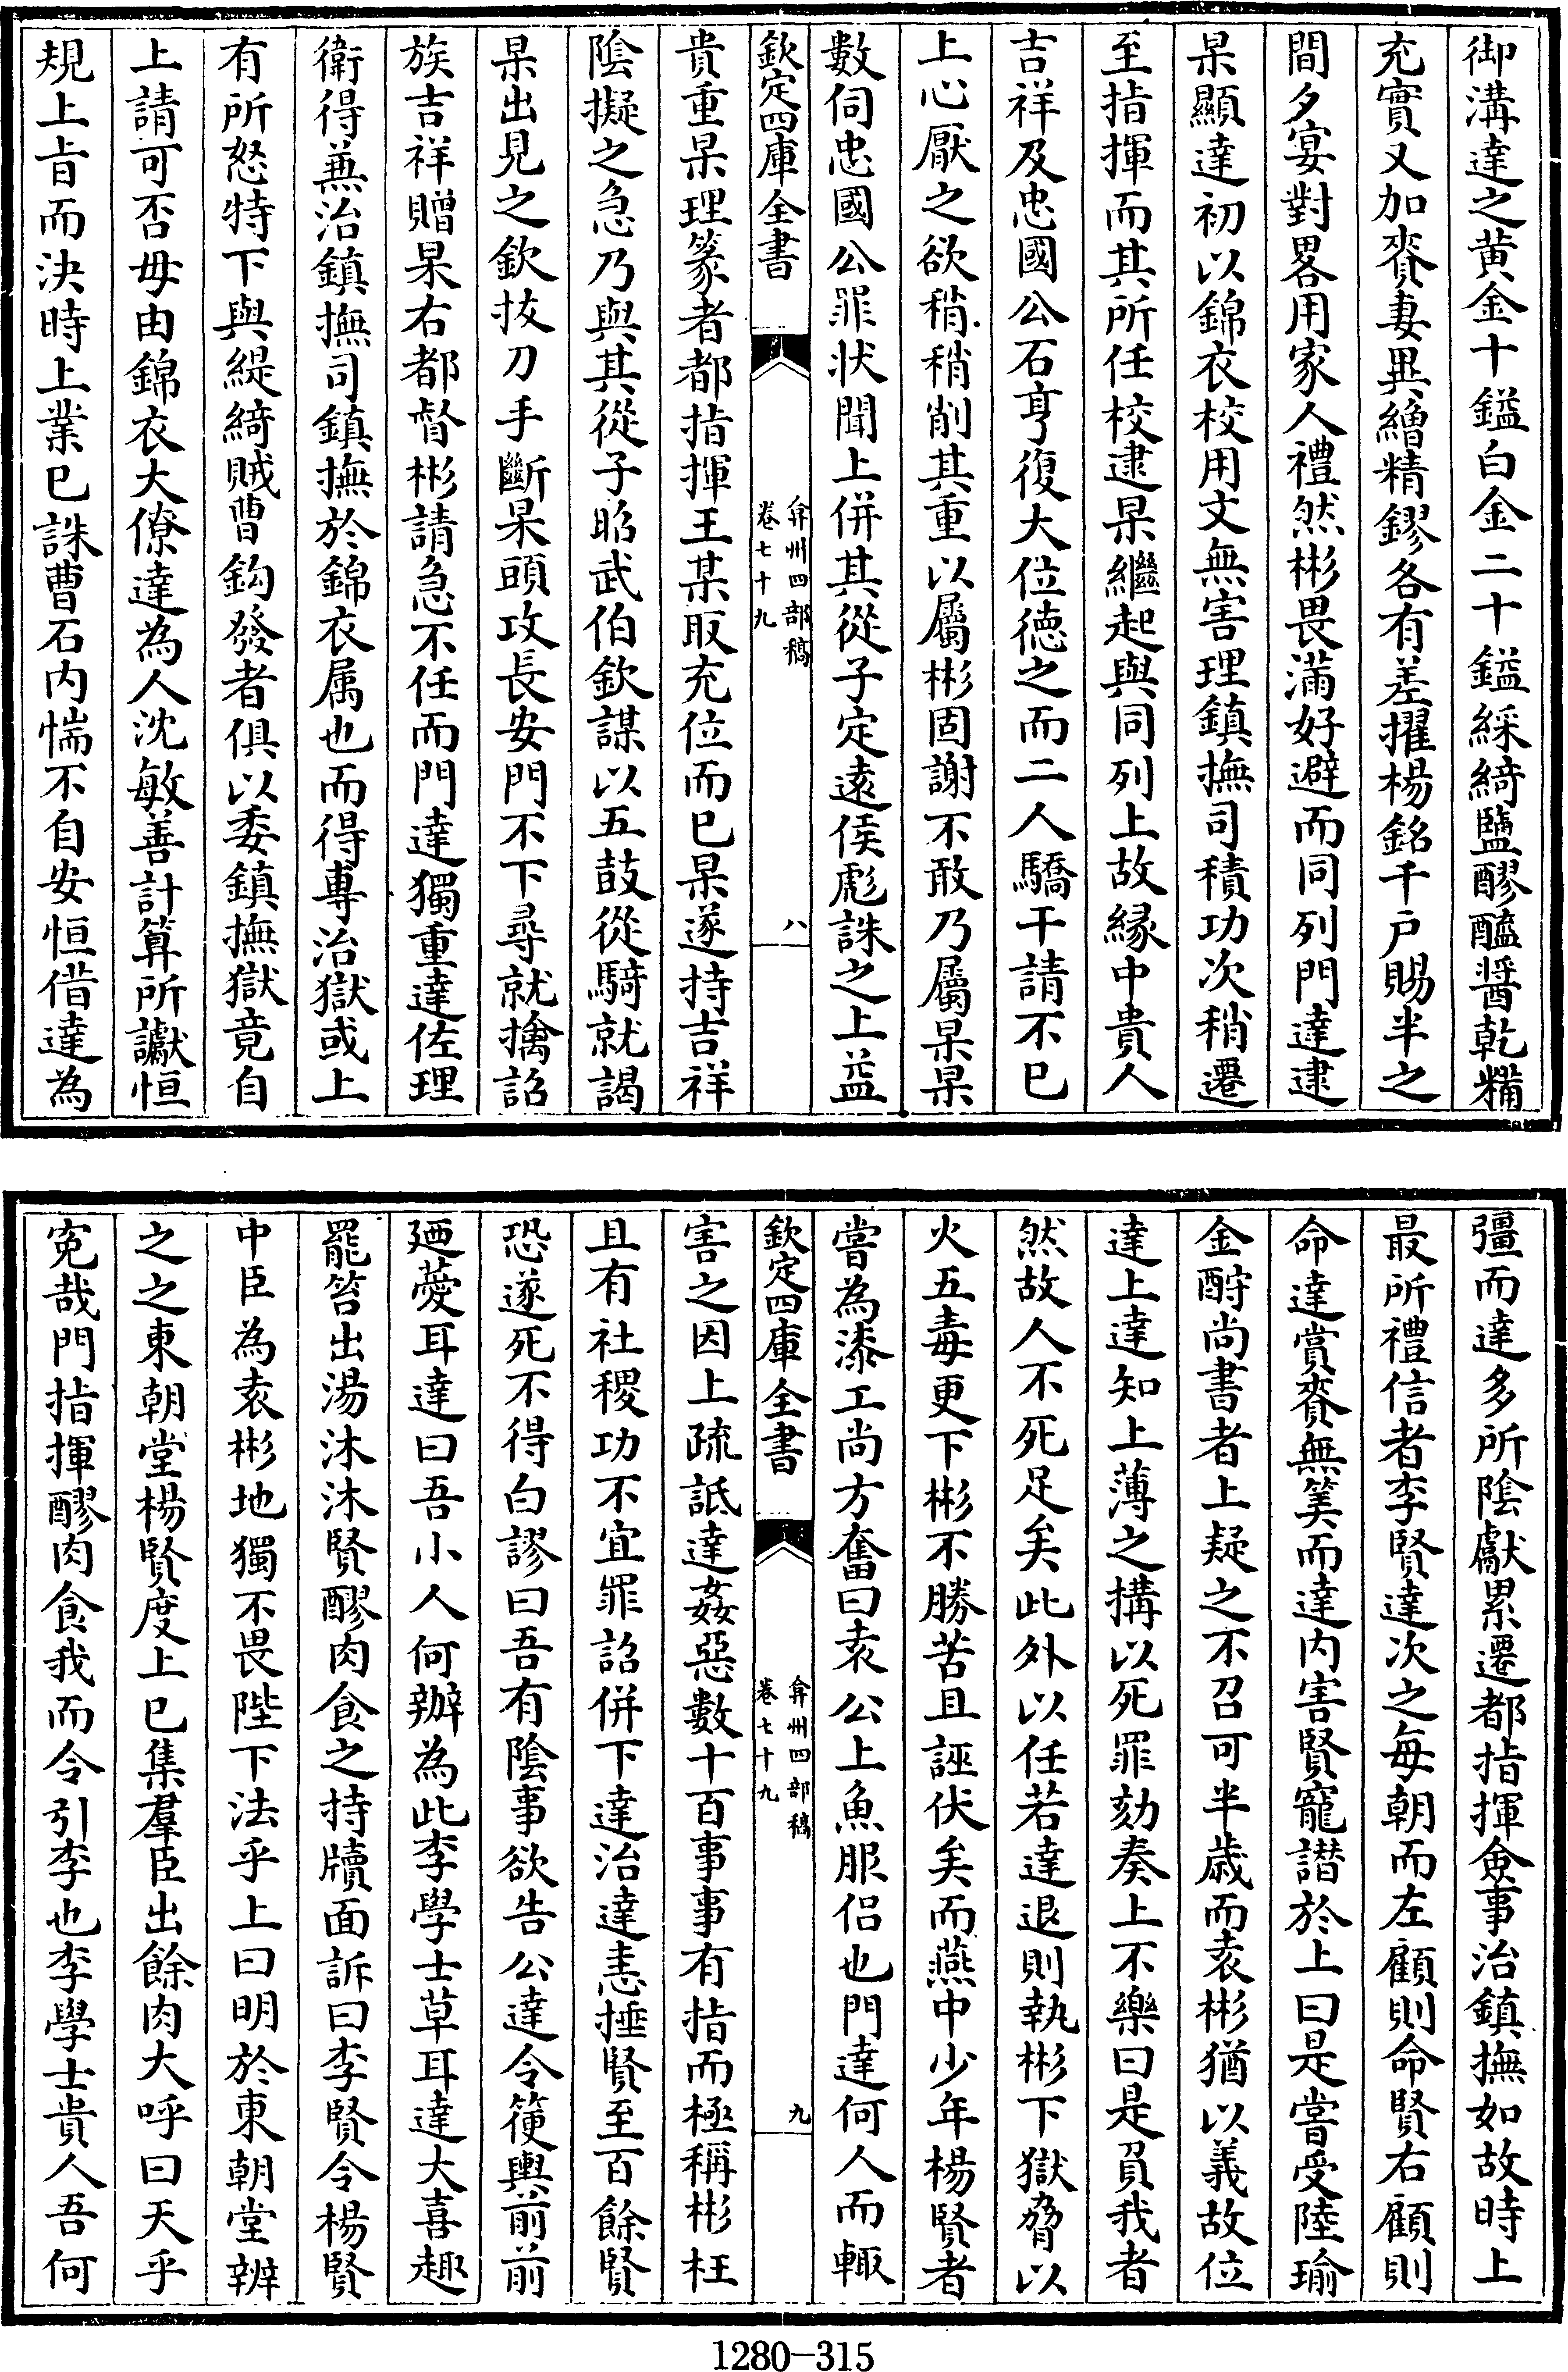 御溝達之黄金十鎰白金二十鎰綵綺鹽醪醯醬乾糒
充實又加賚妻兵繒精鏐各有差擢楊銘千戶賜半之
間夕宴對畧用家人禮然彬畏滿好避而同列門達逮
杲顯達初以錦衣校用文無害理鎮撫司積功次稍遷
至指揮而其所任校逮杲繼起與同列上故縁中貴人
吉祥及忠國公石亨復大位德之而二人驕干請不已
上心厭之欲稍稍削其重以屬彬固謝不敢乃屬杲杲
數伺忠國公罪状聞上併其從子定遠侯彪誅之上益
欽定四庫全書
弇州四部稿
卷七十九
八
貴重杲理篆者都指揮王某取充位而已杲遂持吉祥
陰擬之急乃與其從子昭武伯欽謀以五鼓從騎就謁
杲出見之欽抜刀手斷杲頭攻長安門不下尋就擒詔
族吉祥贈杲右都督彬請急不任而門達獨重達佐理
衛得兼治鎮撫司鎮撫於錦衣属也而得專治獄或上
有所怒特下與緹綺賊曹鈎發者俱以委鎮撫獄竟自
上請可否毋由錦衣大僚達為人沈敏善計算所讞恒
規上旨而決時上業已誅曹石内惴不自安恒借達為
彊而達多所陰獻累遷都指揮僉事治鎮撫如故時上
最所禮信者李賢達次之每朝而左顧則命賢右顧則
命達賞賚無筭而達内害賢寵譖於上曰是嘗受陸瑜
金酧尚書者上疑之不召可半歳而袁彬猶以義故位
達上達知上薄之搆以死罪劾奏上不樂曰是負我者
然故人不死足矣此外以任若達退則執彬下獄脅以
火五毒更下彬不勝苦且誣伏矣而燕中少年楊賢者
嘗為漆工尚方奮曰袁公上魚服侣也門達何人而輙
欽定四庫全書
弇州四部稿
卷七十九
九
害之因上疏詆達姦惡數十百事事有指而極稱彬枉
且有社稷功不宜罪詔併下達治達恚捶賢至百餘賢
恐遂死不得白謬曰吾有陰事欲告公達令箯輿前前
廼薆耳達曰吾小人何辦為此李學士草耳達大喜趣
罷笞出湯沐沐賢醪肉食之持牘面訴曰李賢令楊賢
中臣為袁彬地獨不畏陛下法乎上曰明於東朝堂辦
之之東朝堂楊賢度上已集羣臣出餘肉大呼曰天乎
寃哉門指揮醪肉食我而令引李也李學士貴人吾何
1280-315